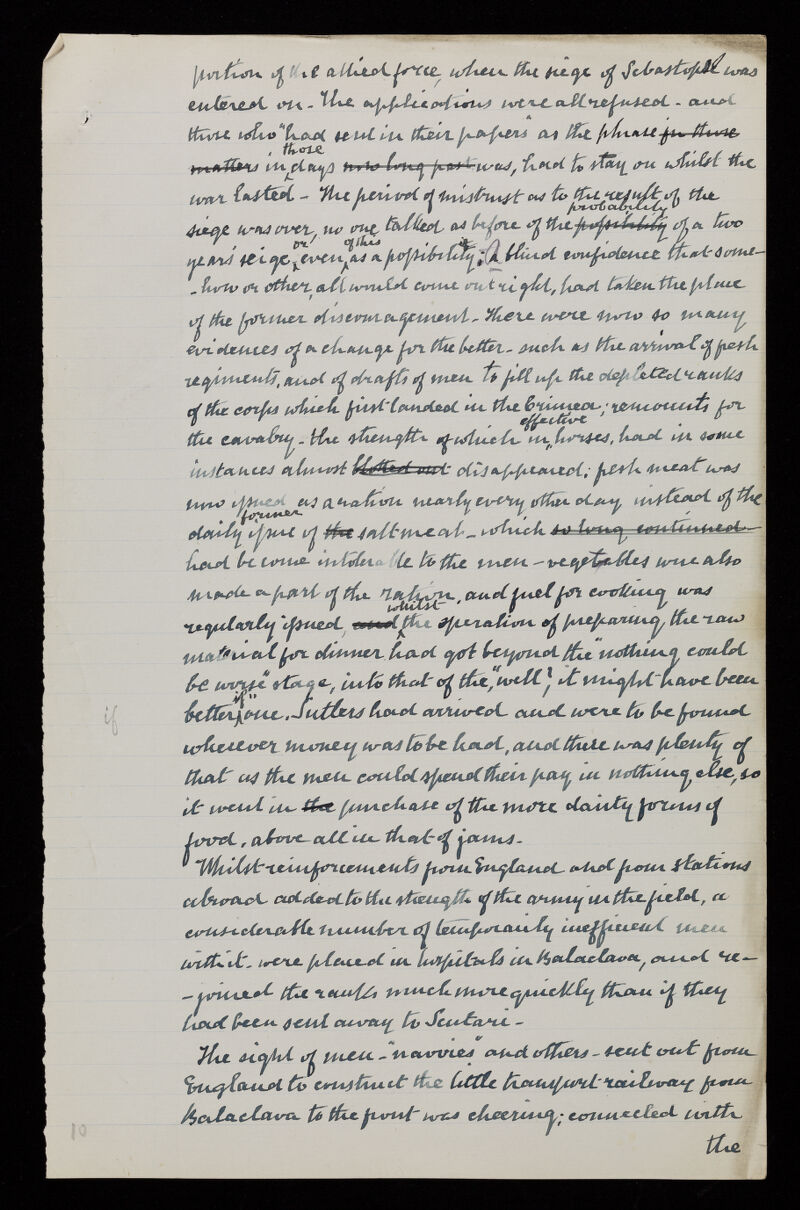 portion of the allied force, when the siege of Sebastopol was
entered on - The applications were all refused - and
those who "had sent in their papers" as the phrase in those
matters in those days now long past was, had to stay on whilst the
war lasted - The period of mistrust as to the result of the
siege was over, no one talked as before of the possibility probability of a two
years' seige, or even of this as a possibility; A blind confidence that some-
-how or other, all would come out right, had taken the place
of the former discouragement - There were now so many
evidences of a change for the better - such as the arrival of fresh
regiments, and of drafts of men to fill up the depleted ranks
of the corps which first landed in the Crimea; remounts for
the cavalry - the strength of which in effective horses, had in some
instances almost blotted out disappeared; fresh meat was
now issued as a ration nearly every other day instead of the
daily former issue of the salt meat - which so long continued
had become intolerable to the men - vegetables were also
made a part of the ration, and fuel for cooking was
regularly issued, and whilst the operation of preparing the raw
material for dinner had got beyond the "nothing could
be worse" stage, into that of the, "well, it might have been
better if" one. Sutlers had arrived and were to be found
wherever money was to be had, and there was plenty of
that as the men could spend their pay in nothing else, so
it went in the purchase of the more dainty forms of
food, above all in that of jams -
Whilst reinforcements from England and from stations
abroad added to the strength of the army in the field, a
considerable number of temporarily inefficient men
with it - were placed in hospitals in Balaclava, and re-
-joined the ranks much more quickly than if they
had been sent away to Scutari -
The sight of men - "navvies" and others - sent out from
England to construct the little transport railway from
Balaclava to the front was cheering; connected with
the
if
10